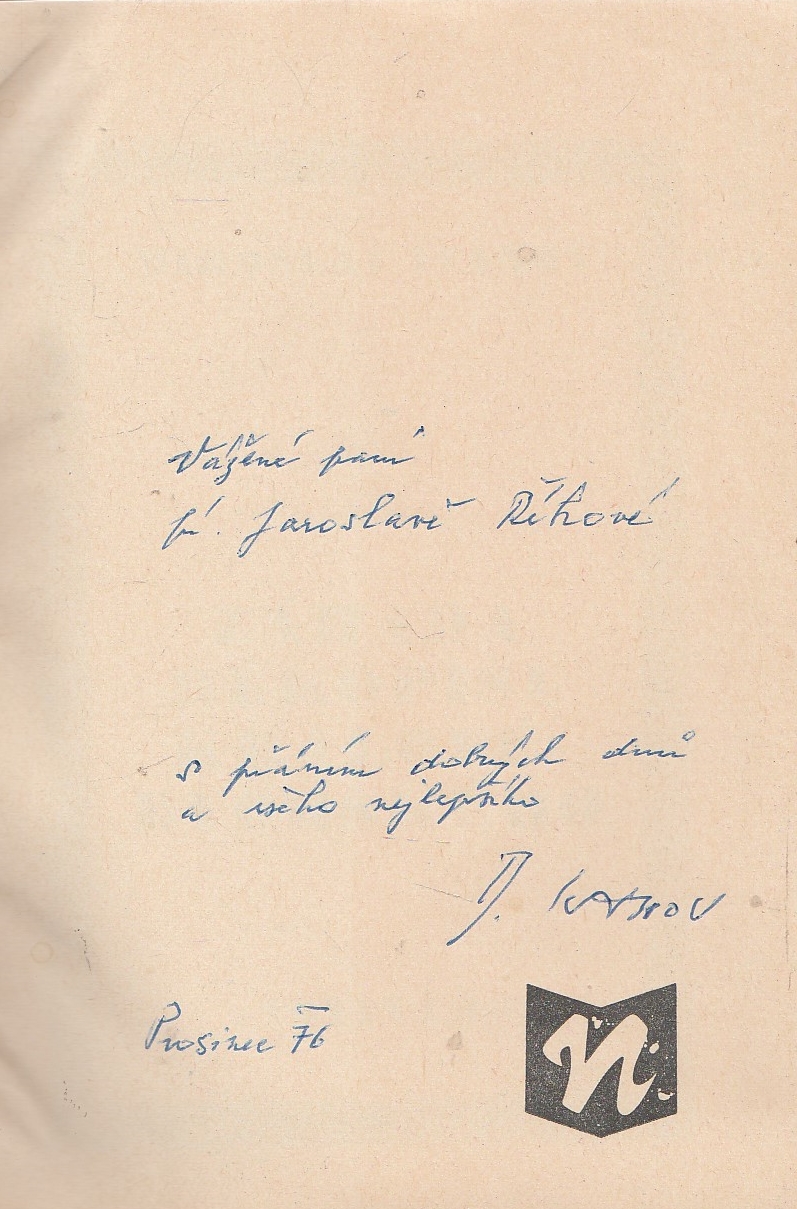 Vážené paní
pí. Jaroslavě Říhové
s přáním dobrých dnů
a všeho nejlepšího
Prosinec 76
n